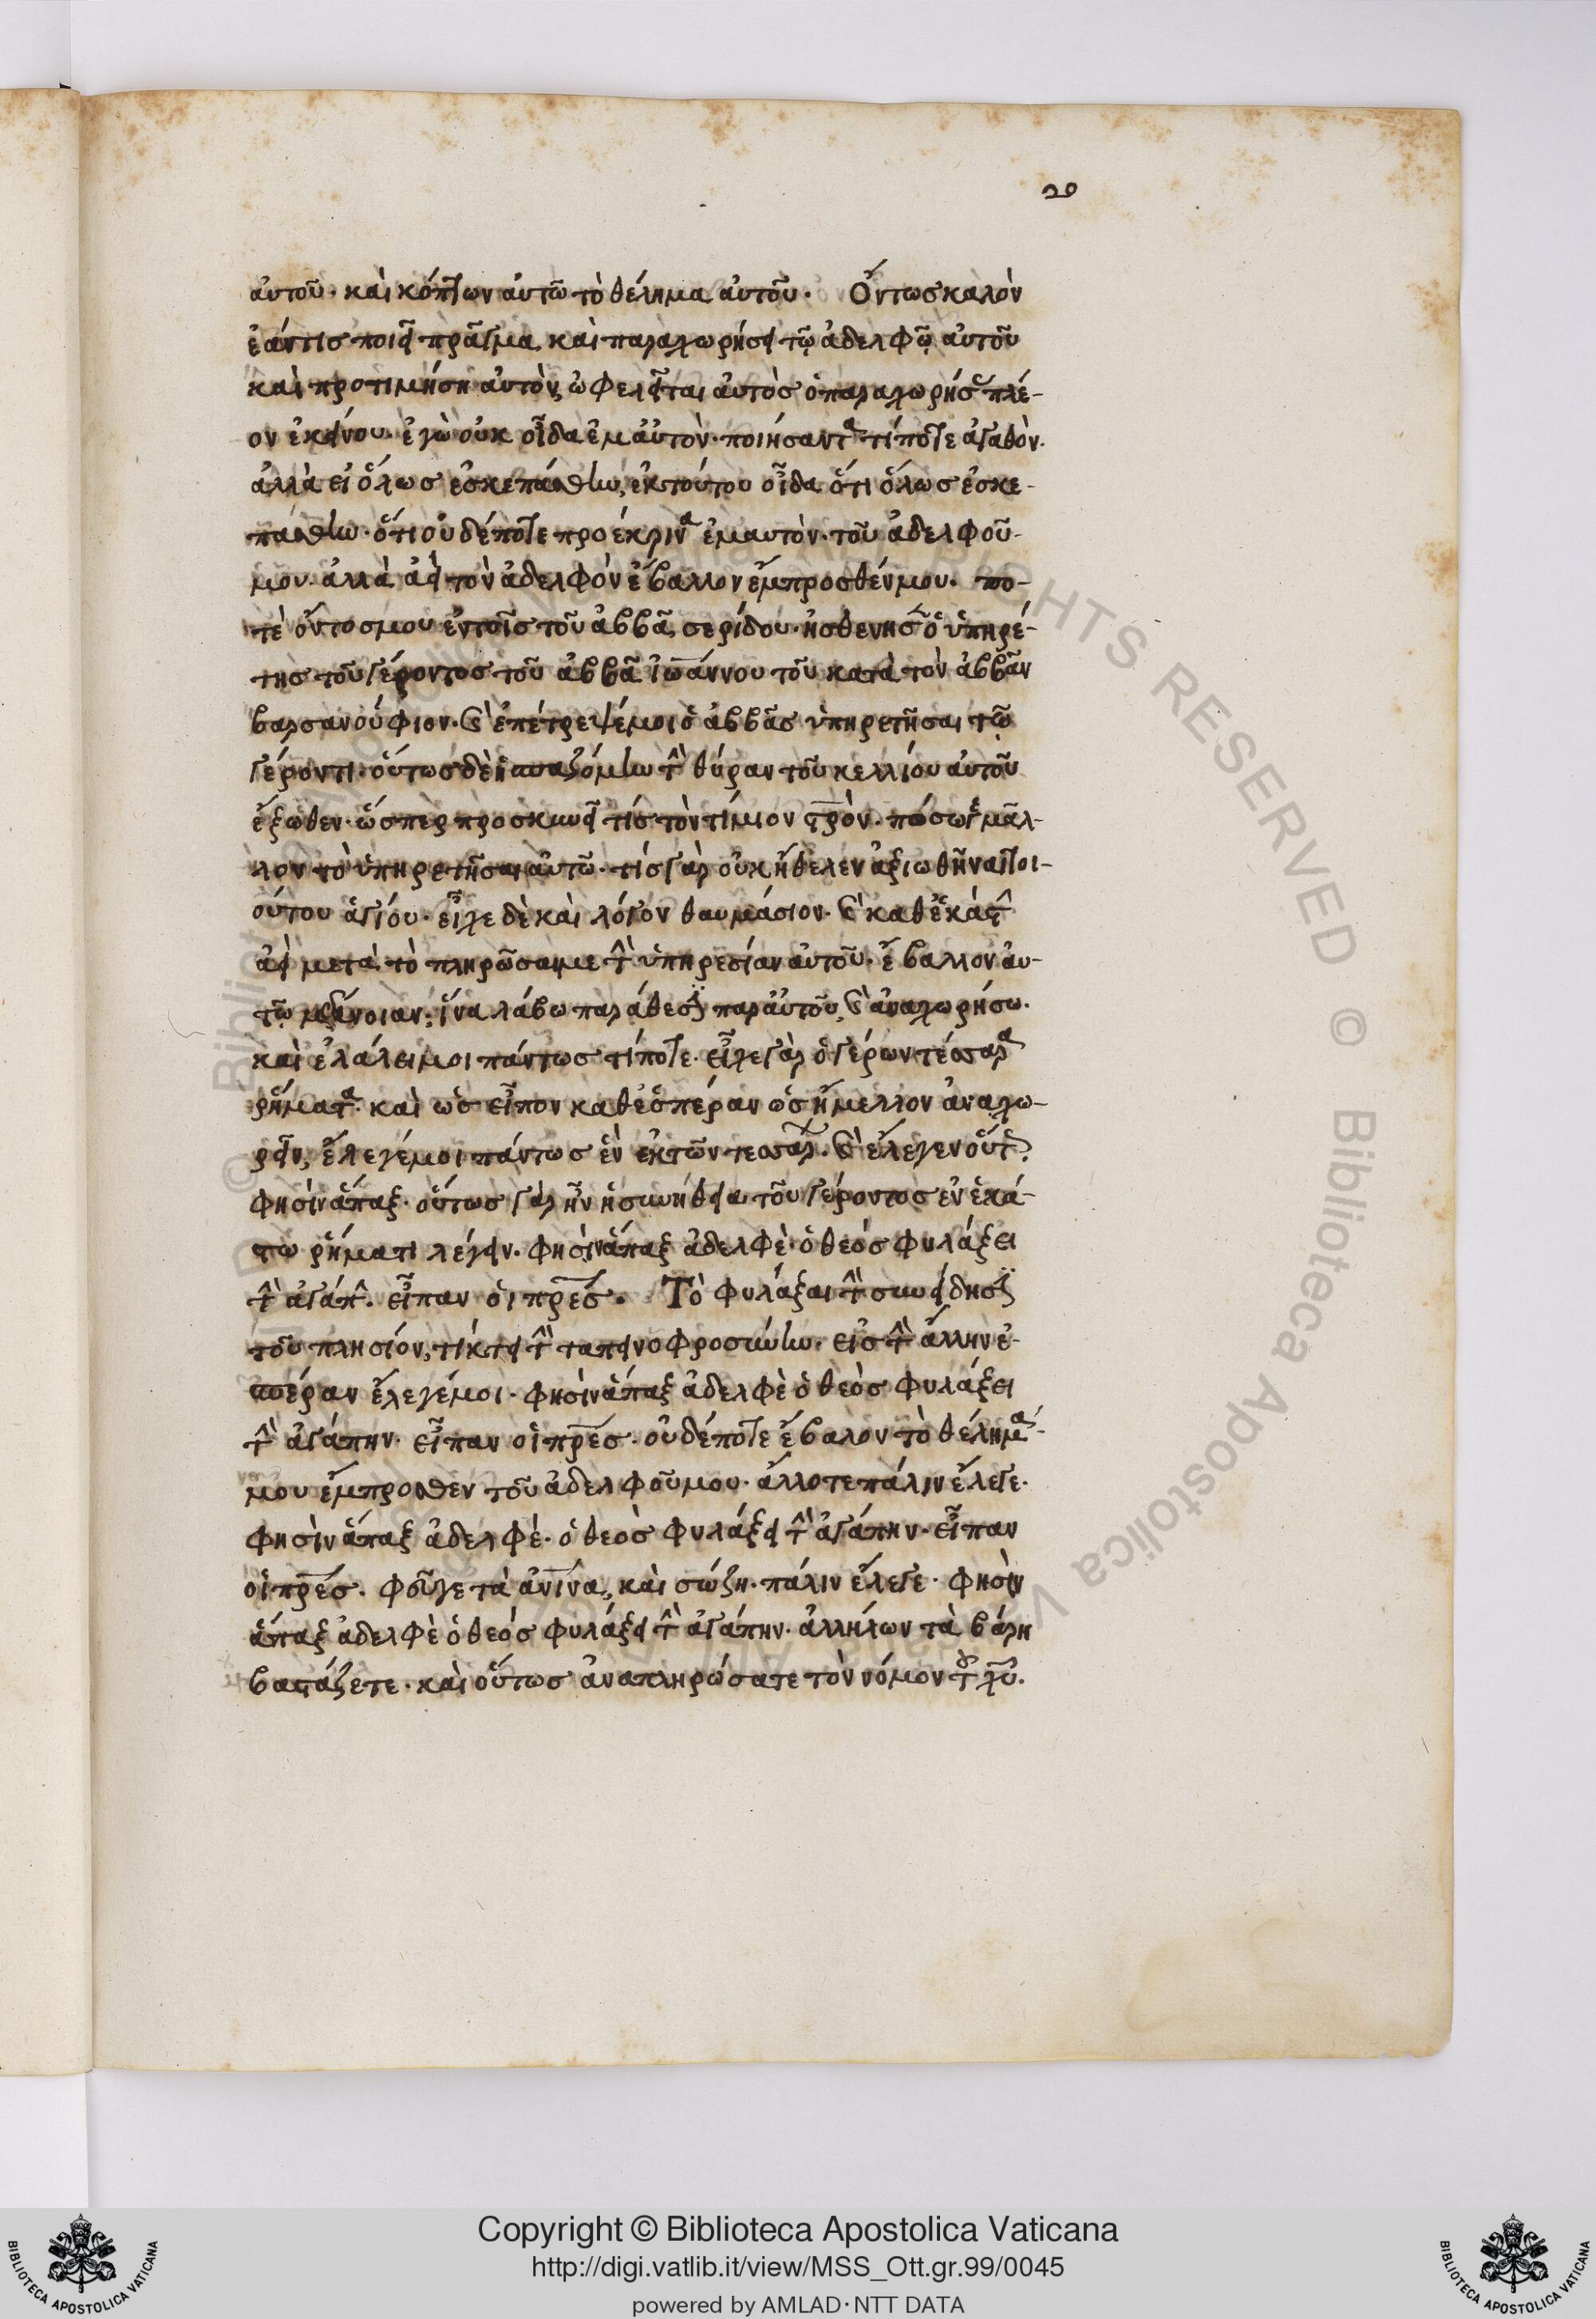 29
αὐτοῦ· καὶ κόπτων αὐτῶ τὸ θέλημα αὐτοῦ· Ὄντως καλὸν
ἐάν τις ποιεῖ πρᾶγμα καὶ παραχωρήσει τῷ ἀδελφῷ αὐτοῦ
καὶ προτιμήση αὐτὸν, ὠφελεῖται αὐτὸς ὁ παραχωρήσ(ας) πλέ-
ον ἐκείνου· ἐγὼ οὐκ οἶδα ἐμαὐτὸν· ποιήσαντα τίποτε ἀγαθὸν·
ἀλλὰ εἰ ὅλως ἐσκεπάσθην, ἐκ τούτου οἶδα ὅτι ὅλως ἐσκε-
πάσθην· ὅτι οὐδέποτε προέκρινα ἐμαυτὸν· τοῦ ἀδελφοῦ-
μου· ἀλλὰ ἀεὶ τὸν ἀδελφὸν ἔβαλλον ἔμπροσθέν μου· πο-
τὲ ὄντος μου ἐν τοῖς τοῦ ἀββᾶ σερίδου· ἠσθένησεν ὁ ὑπηρέ-
της τοῦ γέροντος τοῦ ἀββᾶ ἰωάννου τοῦ κατὰ τὸν ἀββᾶν
βαρσανούφιον· καὶ ἐπέτρεψέ μοι ὁ ἀββᾶς ὑπηρετῆσαι τῷ
γέροντι· οὕτως δὲ ἠσπαζόμην τὴν θύραν τοῦ κελλίου αὐτοῦ
ἔξωθεν· ὥσπερ προσκυνεῖ τίς τὸν τίμιον σ̅ρ̅ὸν· πόσω μᾶλ-
λον τὸ ὑπηρετῆσαι αὐτῶ· τίς γὰρ οὐκ ἤθελεν ἀξιωθῆναι τοι-
ούτου ἁγίου· εἶχε δὲ καὶ λόγον θαυμάσιον· καὶ καθἑκάστην
ἀεὶ μετὰ τὸ πληρῶσαι με τὴν ὑπηρεσίαν αὐτοῦ· ἔβαλλον αὐ-
τῷ μετάνοιαν· ἵνα λάβω παράθεσιν παραὐτοῦ, καὶ ἀναχωρήσω·
καὶ ἐλάλει μοι πάντως τίποτε· εἶχε γὰρ ὁ γέρων τέσσαρα
ρήματα· καὶ ὡς εἶπον καθἑσπέραν ὡς ἤμελλον ἀναχω-
ρεῖν, ἔλεγέ μοι πάντως ἓν ἐκ τῶν τεσσάρων· καὶ ἔλεγεν οὕτως·
φησὶν ἅπαξ· οὕτως γὰρ ἦν ἡ συνήθεια τοῦ γέροντος ἐν ἑκά-
στω ρήματι λέγειν· φησὶν ἅπαξ ἀδελφὲ· ὁ θεός φυλάξει
τὴν ἀγάπην· εἶπαν οἱ πρ̅ε̅ς· Τὸ φυλάξαι τὴν συνείδησιν
τοῦ πλησίον, τίκτει τὴν ταπεινοφροσύνην· εἰς τὴν ἄλλην ἑ-
σπέραν ἔλεγέ μοι· φησὶν ἅπαξ ἀδελφὲ ὁ θεὸς φυλάξει
τὴν ἀγάπην· εἶπαν οἱ πρ̅ε̅ς· οὐδέποτε ἔβαλον τὸ θέλημά-
μου ἔμπροσθεν τοῦ ἀδελφοῦ μου· ἄλλοτε πάλιν ἔλεγε·
φησὶν ἅπαξ ἀδελφὲ· ὁ θεὸς φυλάξει τὴν ἀγάπην· εἶπαν
οἱ πρ̅ε̅ς· φεῦγε τὰ ἀν̅ι̅να, καὶ σώζη· πάλιν ἔλεγε· φησὶν
ἅπαξ ἀδελφὲ ὁ θεός φυλάξει τὴν ἀγάπην· ἀλλήλων τὰ βάρη
βαστάζετε· καὶ οὕτως ἀναπληρώσατε τὸν νόμον τοῦ χ̅υ̅·
© Biblioteca Apostolica Vaticana
ALL RIGHTS RESERVED
BIBLIOTECA APOSTOLICA VATICANA
Copyright © Biblioteca Apostolica Vaticana
http://digi.vatlib.it/view/MSS_Ott.gr.99/0045
powered by AMLAD·NTT DATA
BIBLIOTECA APOSTOLICA VATICANA